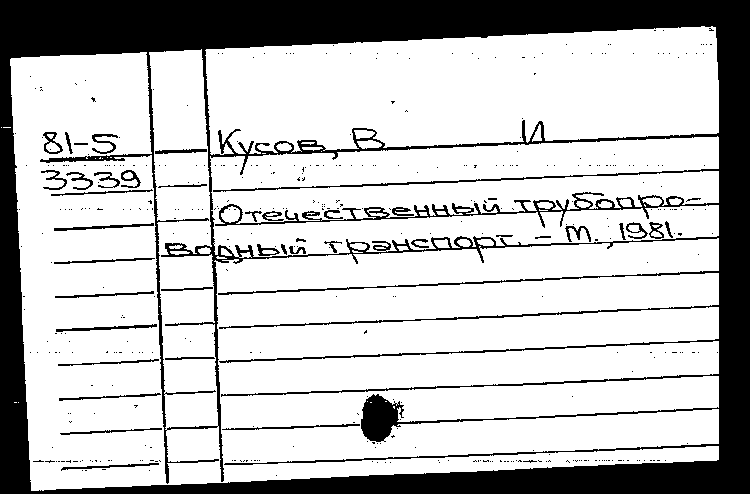 81-5 Кусов, В И
3339
Отечественный трубопро-
водный транспорт. – М., 1981.